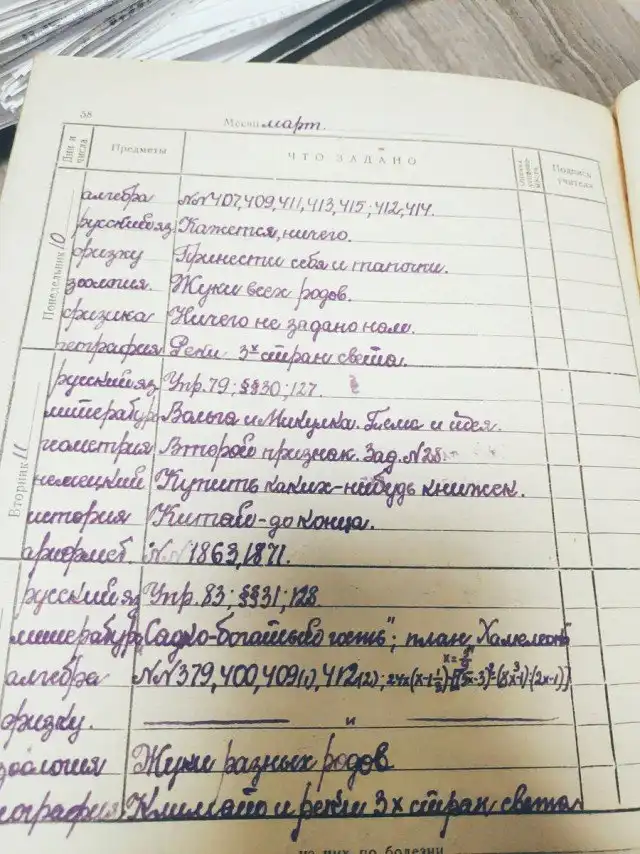 58
Месяц март.
Дни и числа Предметы ЧТО ЗАДАНО Подпись учителя
Понедельник 10
алгебра №№407,409,411,413,415;412,414.
русский яз. Кажется, ничего.
физку Принести себя и тапочки.
зоология. Жуки всех родов.
физика Ничего не задано нам.
география Реки 3х стран света.
Вторник 11
русский яз. Упр.79; §§30;127.
литература Вольга и Микулка. Тема и идея.
геометрия Второй признак. Зад. №28
немецкий Купить каких-нибудь книжек.
история Китай-до конца.
арифмет. №№1863,1871.
русский яз Упр. 83; §§31;128
литература „Садко-богатый гость"; план „Хамелеон"
алгебра №№379,400,409(1),412(2);
физку. и
зоология Жуки разных родов
география Климат и реки 3х стран света
из них по болезни